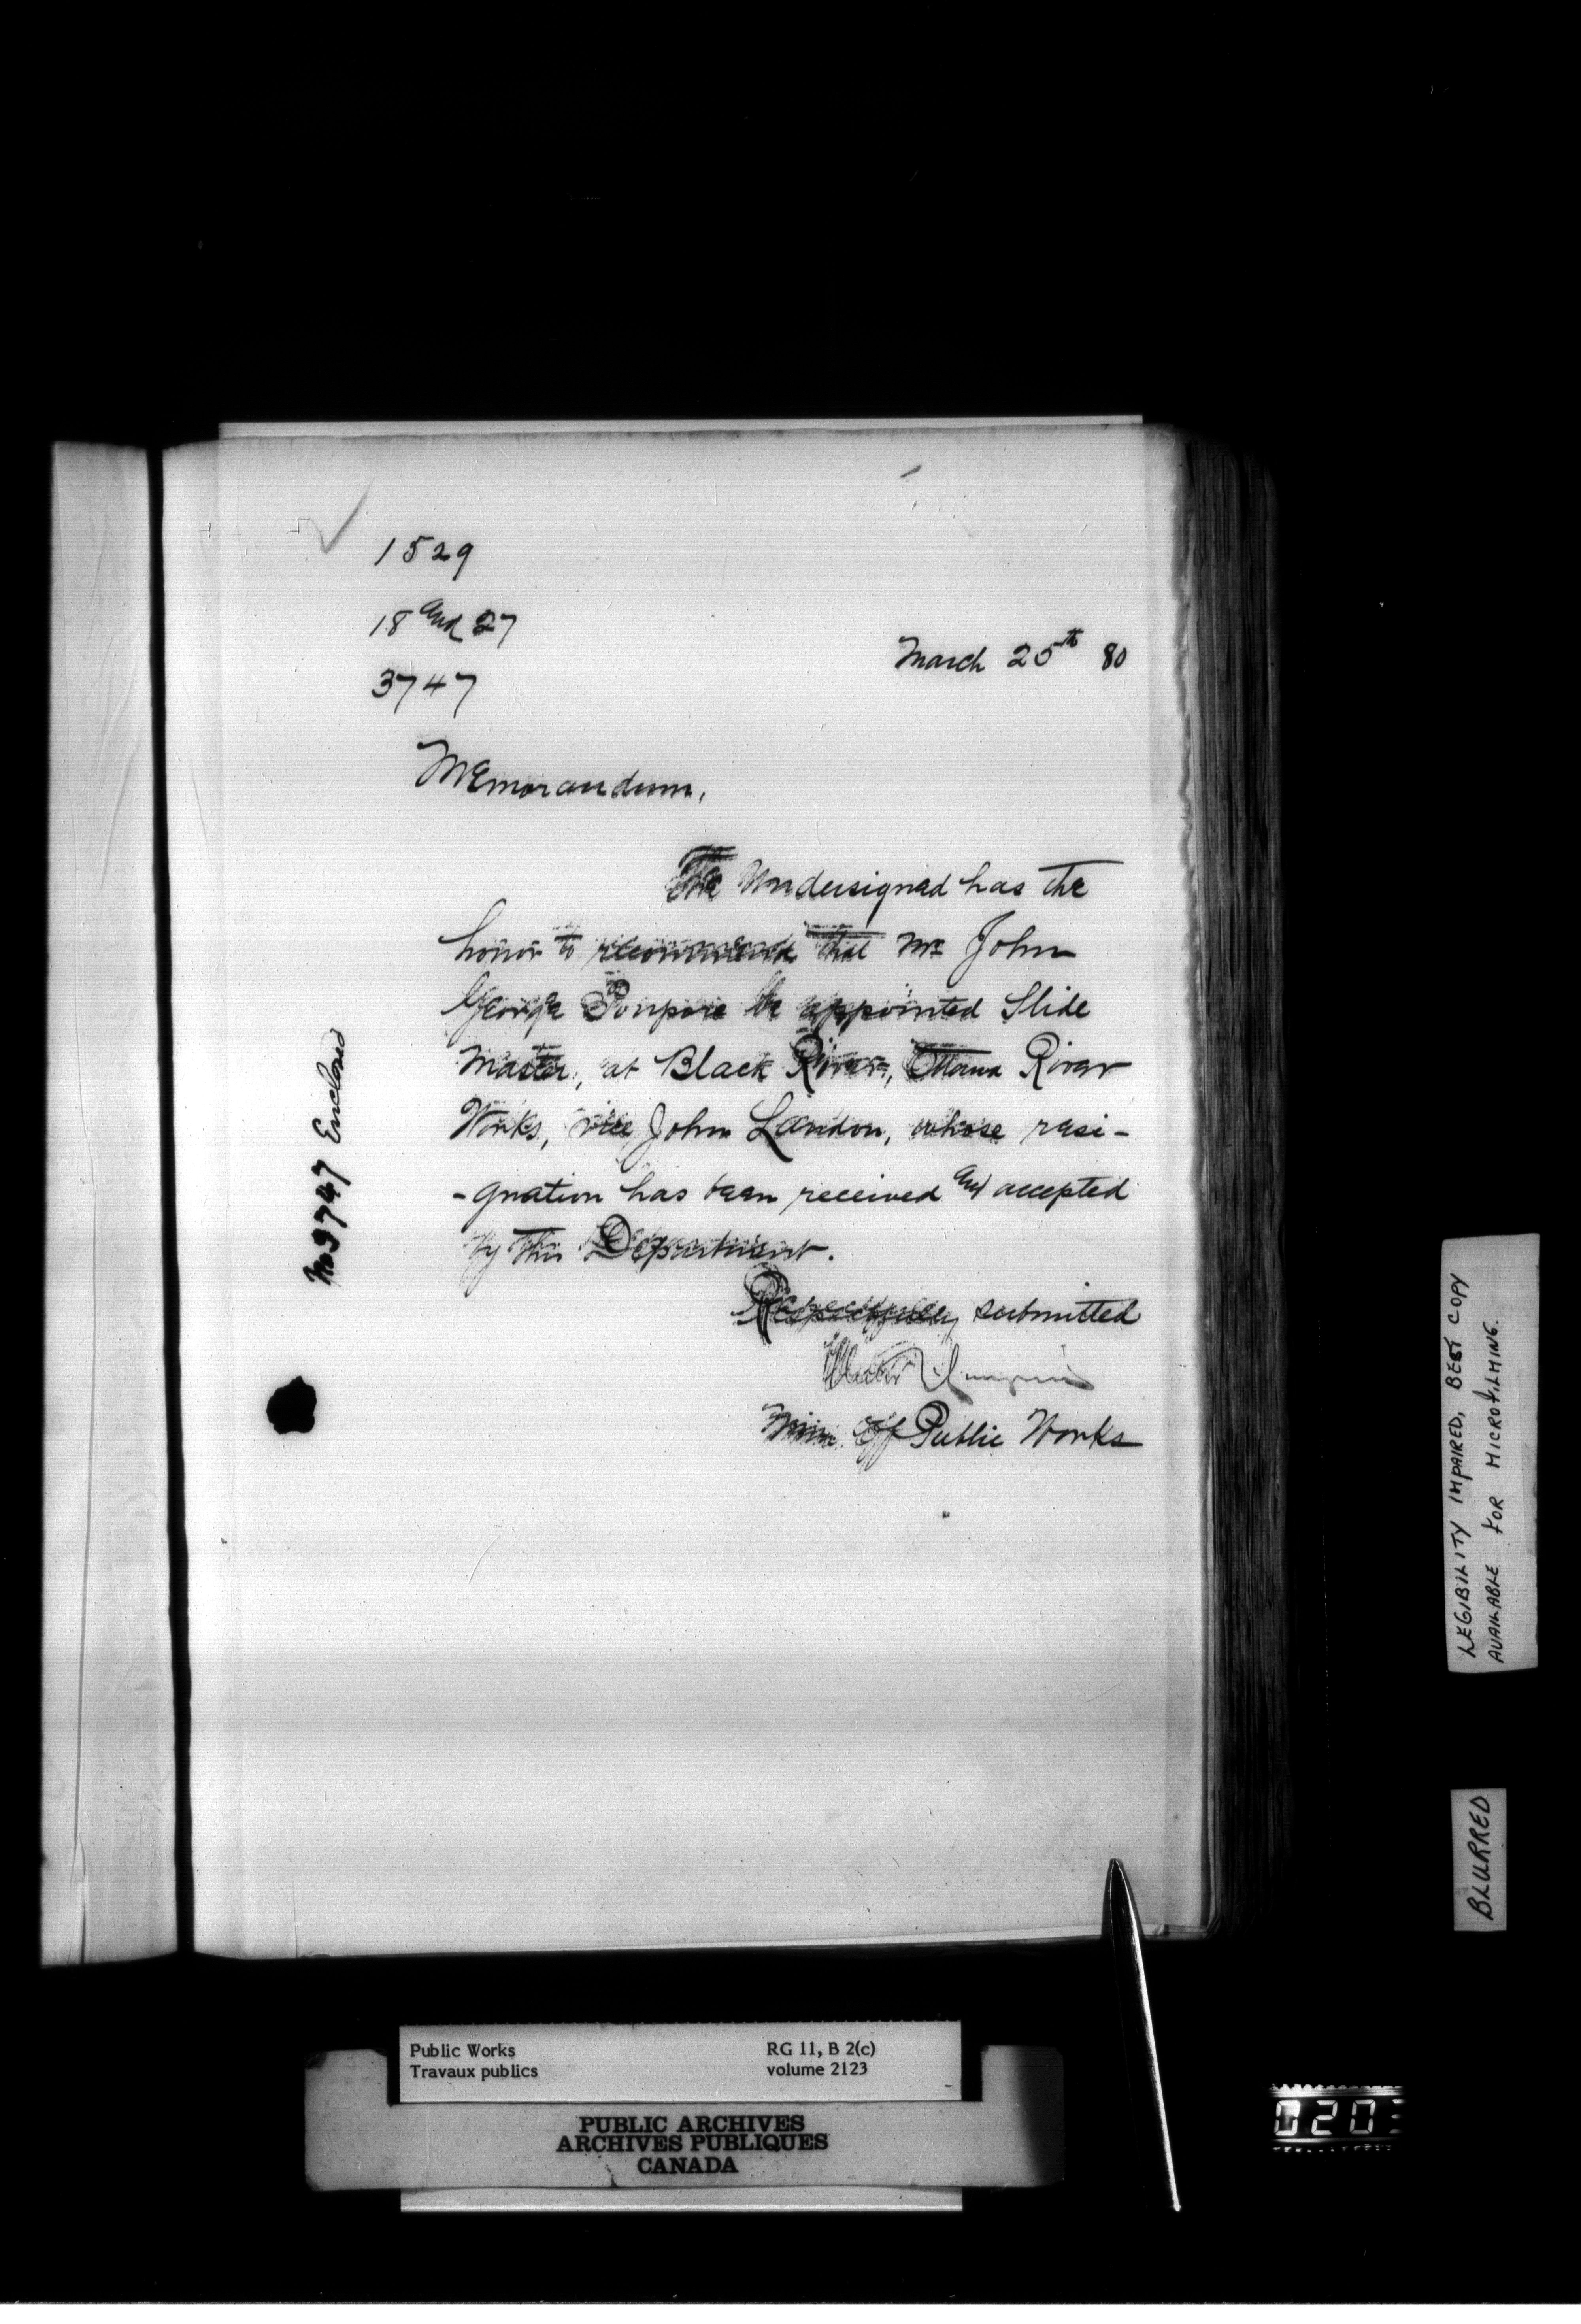 1529
18 and 27
3747
March 25th 80
Memorandum.
The Undersigned has the
honor to recommend that Mr John
George Poupore be appointed Slide
Master, at Black River, Ottawa River
Works, vice John Landon, whose resi-
-gnation has been received and accepted
by this Department.
Respectfully submitted
Hector Langevin
Min. of Public Works
No 3747 Enclosed
LEGIBILITY IMPAIRED, BEST COPY
AVAILABLE FOR MICROFILMING.
BLURRED
Public Works
Travaux publics
RG 11, B 2(c)
volume 2123
PUBLIC ARCHIVES
ARCHIVES PUBLIQUES
CANADA